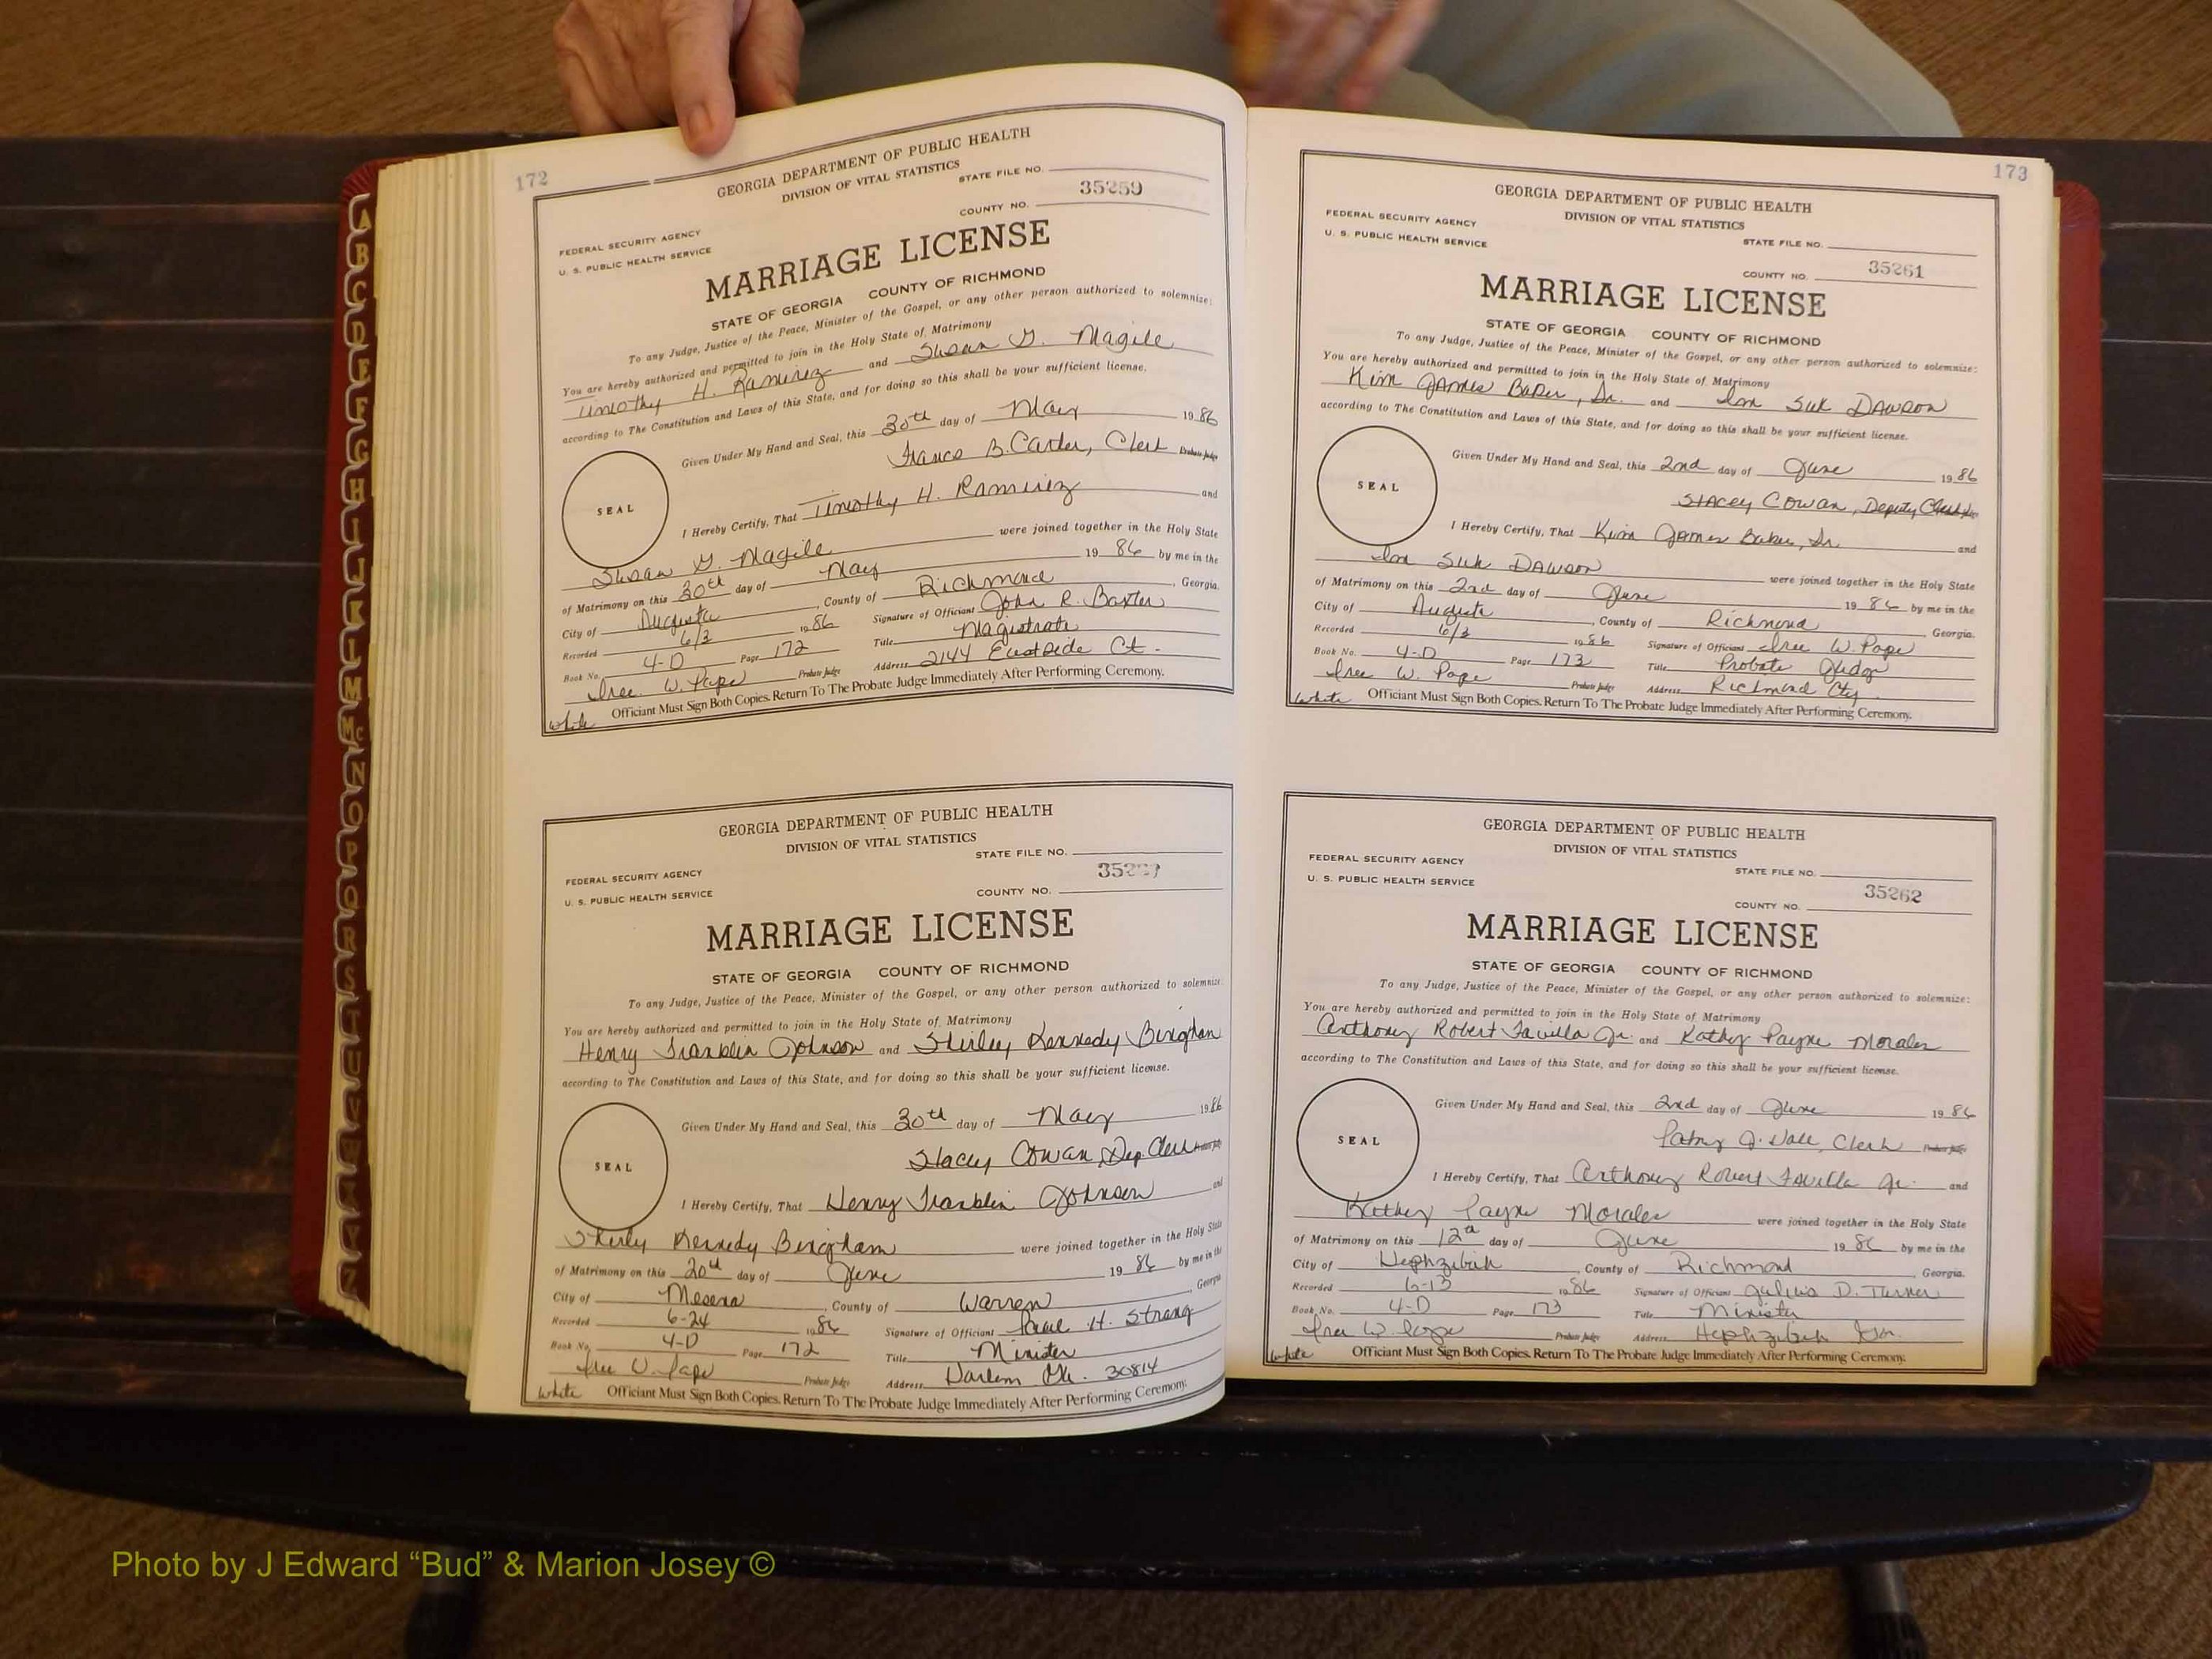 172
GEORGIA DEPARTMENT OF PUBLIC HEALTH
DIVISION OF VITAL STATISTICS
STATE FILE NO.
35259
COUNTY NO.
FEDERAL SECURITY AGENCY
U. S. PUBLIC HEALTH SERVICE
MARRIAGE LICENSE
STATE OF GEORGIA COUNTY OF RICHMOND
To any Judge, Justice of the Peace, Minister of the Gospel, or any other person authorized to solemnize:
You are hereby authorized and permitted to join in the Holy State of Matrimony
Timothy H. Ramirez and Susan G. Magile
according to The Constitution and Laws of this State, and for doing so this shall be your sufficient license.
Given Under My Hand and Seal, this 30th day of May 1986
B. Carter, Clerk Probate Judge
SEAL
I Hereby Certify, That Timothy H. Ramirez and
Susan G. Magile were joined together in the Holy State
of Matrimony on this 30th day of May 1986 by me in the
City of Augusta, County of Richmond, Georgia.
Recorded 6/3 1986 Signature of Officiant John R. Baxter
Book No. 4-D Page 172 Title Magistrate
Iree W. Pope Probate Judge Address 2144 Eastside Ct.
White Officiant Must Sign Both Copies. Return To The Probate Judge Immediately After Performing Ceremony.
GEORGIA DEPARTMENT OF PUBLIC HEALTH
DIVISION OF VITAL STATISTICS
STATE FILE NO.
COUNTY NO.
FEDERAL SECURITY AGENCY
U. S. PUBLIC HEALTH SERVICE
MARRIAGE LICENSE
STATE OF GEORGIA COUNTY OF RICHMOND
To any Judge, Justice of the Peace, Minister of the Gospel, or any other person authorized to solemnize:
You are hereby authorized and permitted to join in the Holy State of Matrimony
Henry Franklin Johnson and Shirley Kennedy Bingham
according to The Constitution and Laws of this State, and for doing so this shall be your sufficient license.
Given Under My Hand and Seal, this 30th day of May 1986
Stacey Cowan, Dep. Clerk Probate Judge
SEAL
I Hereby Certify, That Henry Franklin Johnson and
Shirly Kennedy Bingham were joined together in the Holy State
of Matrimony on this 20th day of June 1986 by me in the
City of Mesena, County of Warren, Georgia
Recorded 6-24 1986 Signature of Officiant H. Strang
Book No. 4-D Page 172 Title Minister
Iree W. Pope Probate Judge Address Harlem Ga. 30814
White Officiant Must Sign Both Copies. Return To The Probate Judge Immediately After Performing Ceremony.
173
GEORGIA DEPARTMENT OF PUBLIC HEALTH
DIVISION OF VITAL STATISTICS
FEDERAL SECURITY AGENCY
U. S. PUBLIC HEALTH SERVICE
STATE FILE NO.
35261
COUNTY NO.
MARRIAGE LICENSE
STATE OF GEORGIA COUNTY OF RICHMOND
To any Judge, Justice of the Peace, Minister of the Gospel, or any other person authorized to solemnize:
You are hereby authorized and permitted to join in the Holy State of Matrimony
Kim James Baker, Sr. and Im Suk Dawson
according to The Constitution and Laws of this State, and for doing so this shall be your sufficient license.
Given Under My Hand and Seal, this 2nd day of June 1986
Stacey Cowan, Deputy Clerk
SEAL
I Hereby Certify, That Kim James Baker, Sr. and
Im Suk Dawson were joined together in the Holy State
of Matrimony on this 2nd day of June 1986 by me in the
City of Augusta, County of Richmond, Georgia.
Recorded 6/3 1986 Signature of Officiant Iree W. Pope
Book No. 4-D Page 173 Title Probate Judge
Iree W. Pope Probate Judge Address Richmond Cty.
White Officiant Must Sign Both Copies. Return To The Probate Judge Immediately After Performing Ceremony.
GEORGIA DEPARTMENT OF PUBLIC HEALTH
DIVISION OF VITAL STATISTICS
FEDERAL SECURITY AGENCY
U. S. PUBLIC HEALTH SERVICE
STATE FILE NO.
35262
COUNTY NO.
MARRIAGE LICENSE
STATE OF GEORGIA COUNTY OF RICHMOND
To any Judge, Justice of the Peace, Minister of the Gospel, or any other person authorized to solemnize:
You are hereby authorized and permitted to join in the Holy State of Matrimony
Anthony Robert Favilla Jr. and Kathy Payne Morales
according to The Constitution and Laws of this State, and for doing so this shall be your sufficient license.
Given Under My Hand and Seal, this 2nd day of June 1986
J. Hall, Clerk Probate Judge
SEAL
I Hereby Certify, That Anthony Robert Favilla Jr. and
Kathy Payne Morales were joined together in the Holy State
of Matrimony on this 12th day of June 1986 by me in the
City of Hephzibah, County of Richmond, Georgia.
Recorded 6-13 1986 Signature of Officiant Julius D. Turner
Book No. 4-D Page 173 Title Minister
Iree W. Pope Probate Judge Address Hephzibah Ga.
White Officiant Must Sign Both Copies. Return To The Probate Judge Immediately After Performing Ceremony.
A
B
C
D
E
F
G
H
I
J
K
L
M
Mc
N
O
P
Q
R
S
T
U
V
W
X
Y
Z
Photo by J Edward “Bud” & Marion Josey ©